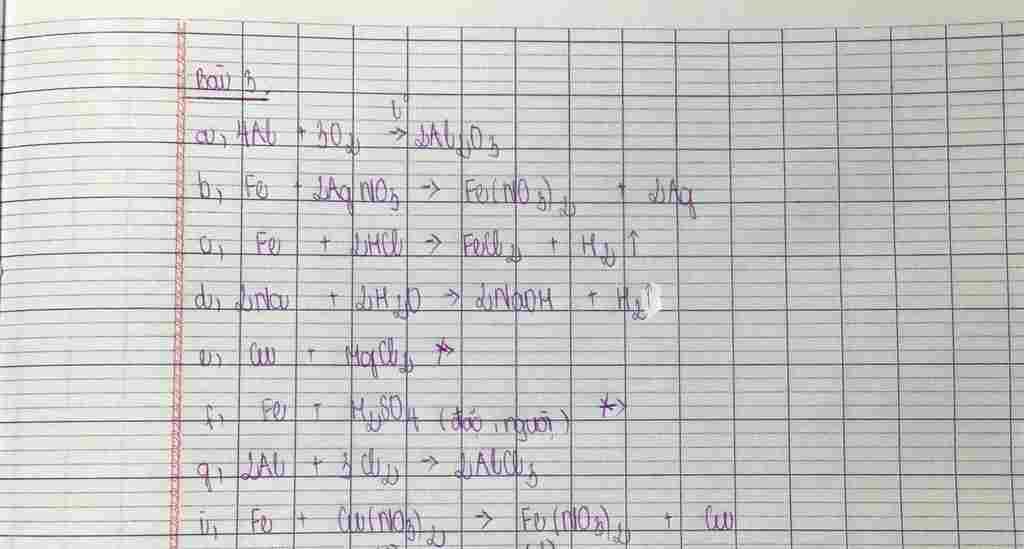 Bài 3.
a, 4Al + 3O₂ t°→ 2Al₂O₃
b, Fe + 2AgNO₃ → Fe(NO₃)₂ + 2Ag
c, Fe + 2HCl → FeCl₂ + H₂ ↑
d, 2Na + 2H₂O → 2NaOH + H₂↑
e, Cu + MgCl₂ ↛
f, Fe + H₂SO₄ (đặc, nguội) ↛
g, 2Al + 3Cl₂ → 2AlCl₃
i, Fe + Cu(NO₃)₂ → Fe(NO₃)₂ + Cu